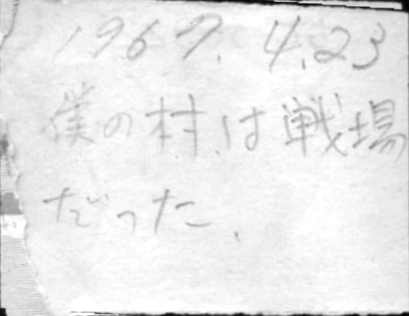 1967.4.23
僕の村は戦場
だった.